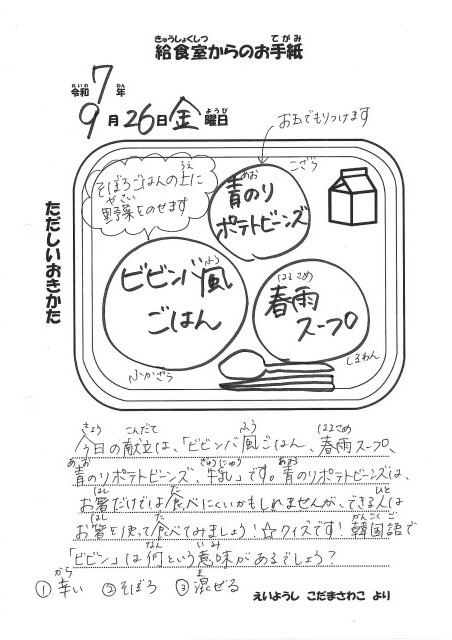 きゅうしょくしつ てがみ
給食室からのお手紙
れいわ ねん
令和7年
ようび
9月26日金曜日
お玉でもりつけます
うえ
そぼろごはんの上に
やさい
野菜をのせます
こざら
あお
青のり
ポテトビーンズ
ただしいおきかた
ふう
ビビンバ風
ごはん
はるさめ
春雨
スープ
ふかざら
しるわん
きょう こんだて ふう はるさめ
今日の献立は、「ビビンバ風ごはん、春雨スープ、
あお ぎゅうにゅう あお
青のりポテトビーンズ、牛乳」です。青のりポテトビーンズは、
はし た ひと
お箸だけでは食べにくいかもしれませんが、できる人は
はし つか た かんこくご
お箸を使って食べてみましょう!☆クイズです!韓国語で
なん いみ
「ビビン」は何という意味があるでしょう?
から ま
①辛い ②そぼろ ③混ぜる
えいようし こだまさわこ より